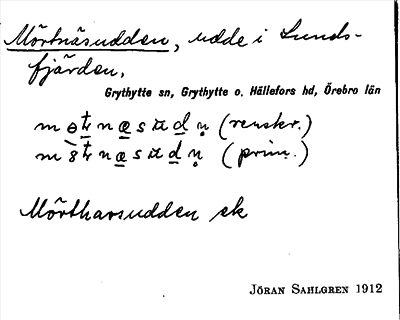 Mörtnäsudden, udde i Lunds-
fjärden,
Grythytte sn, Grythytte o. Hällefors hd, Örebro län
(renskr.)
(prim.)
Mörtharsudden ek
JÖRAN SAHLGREN 1912